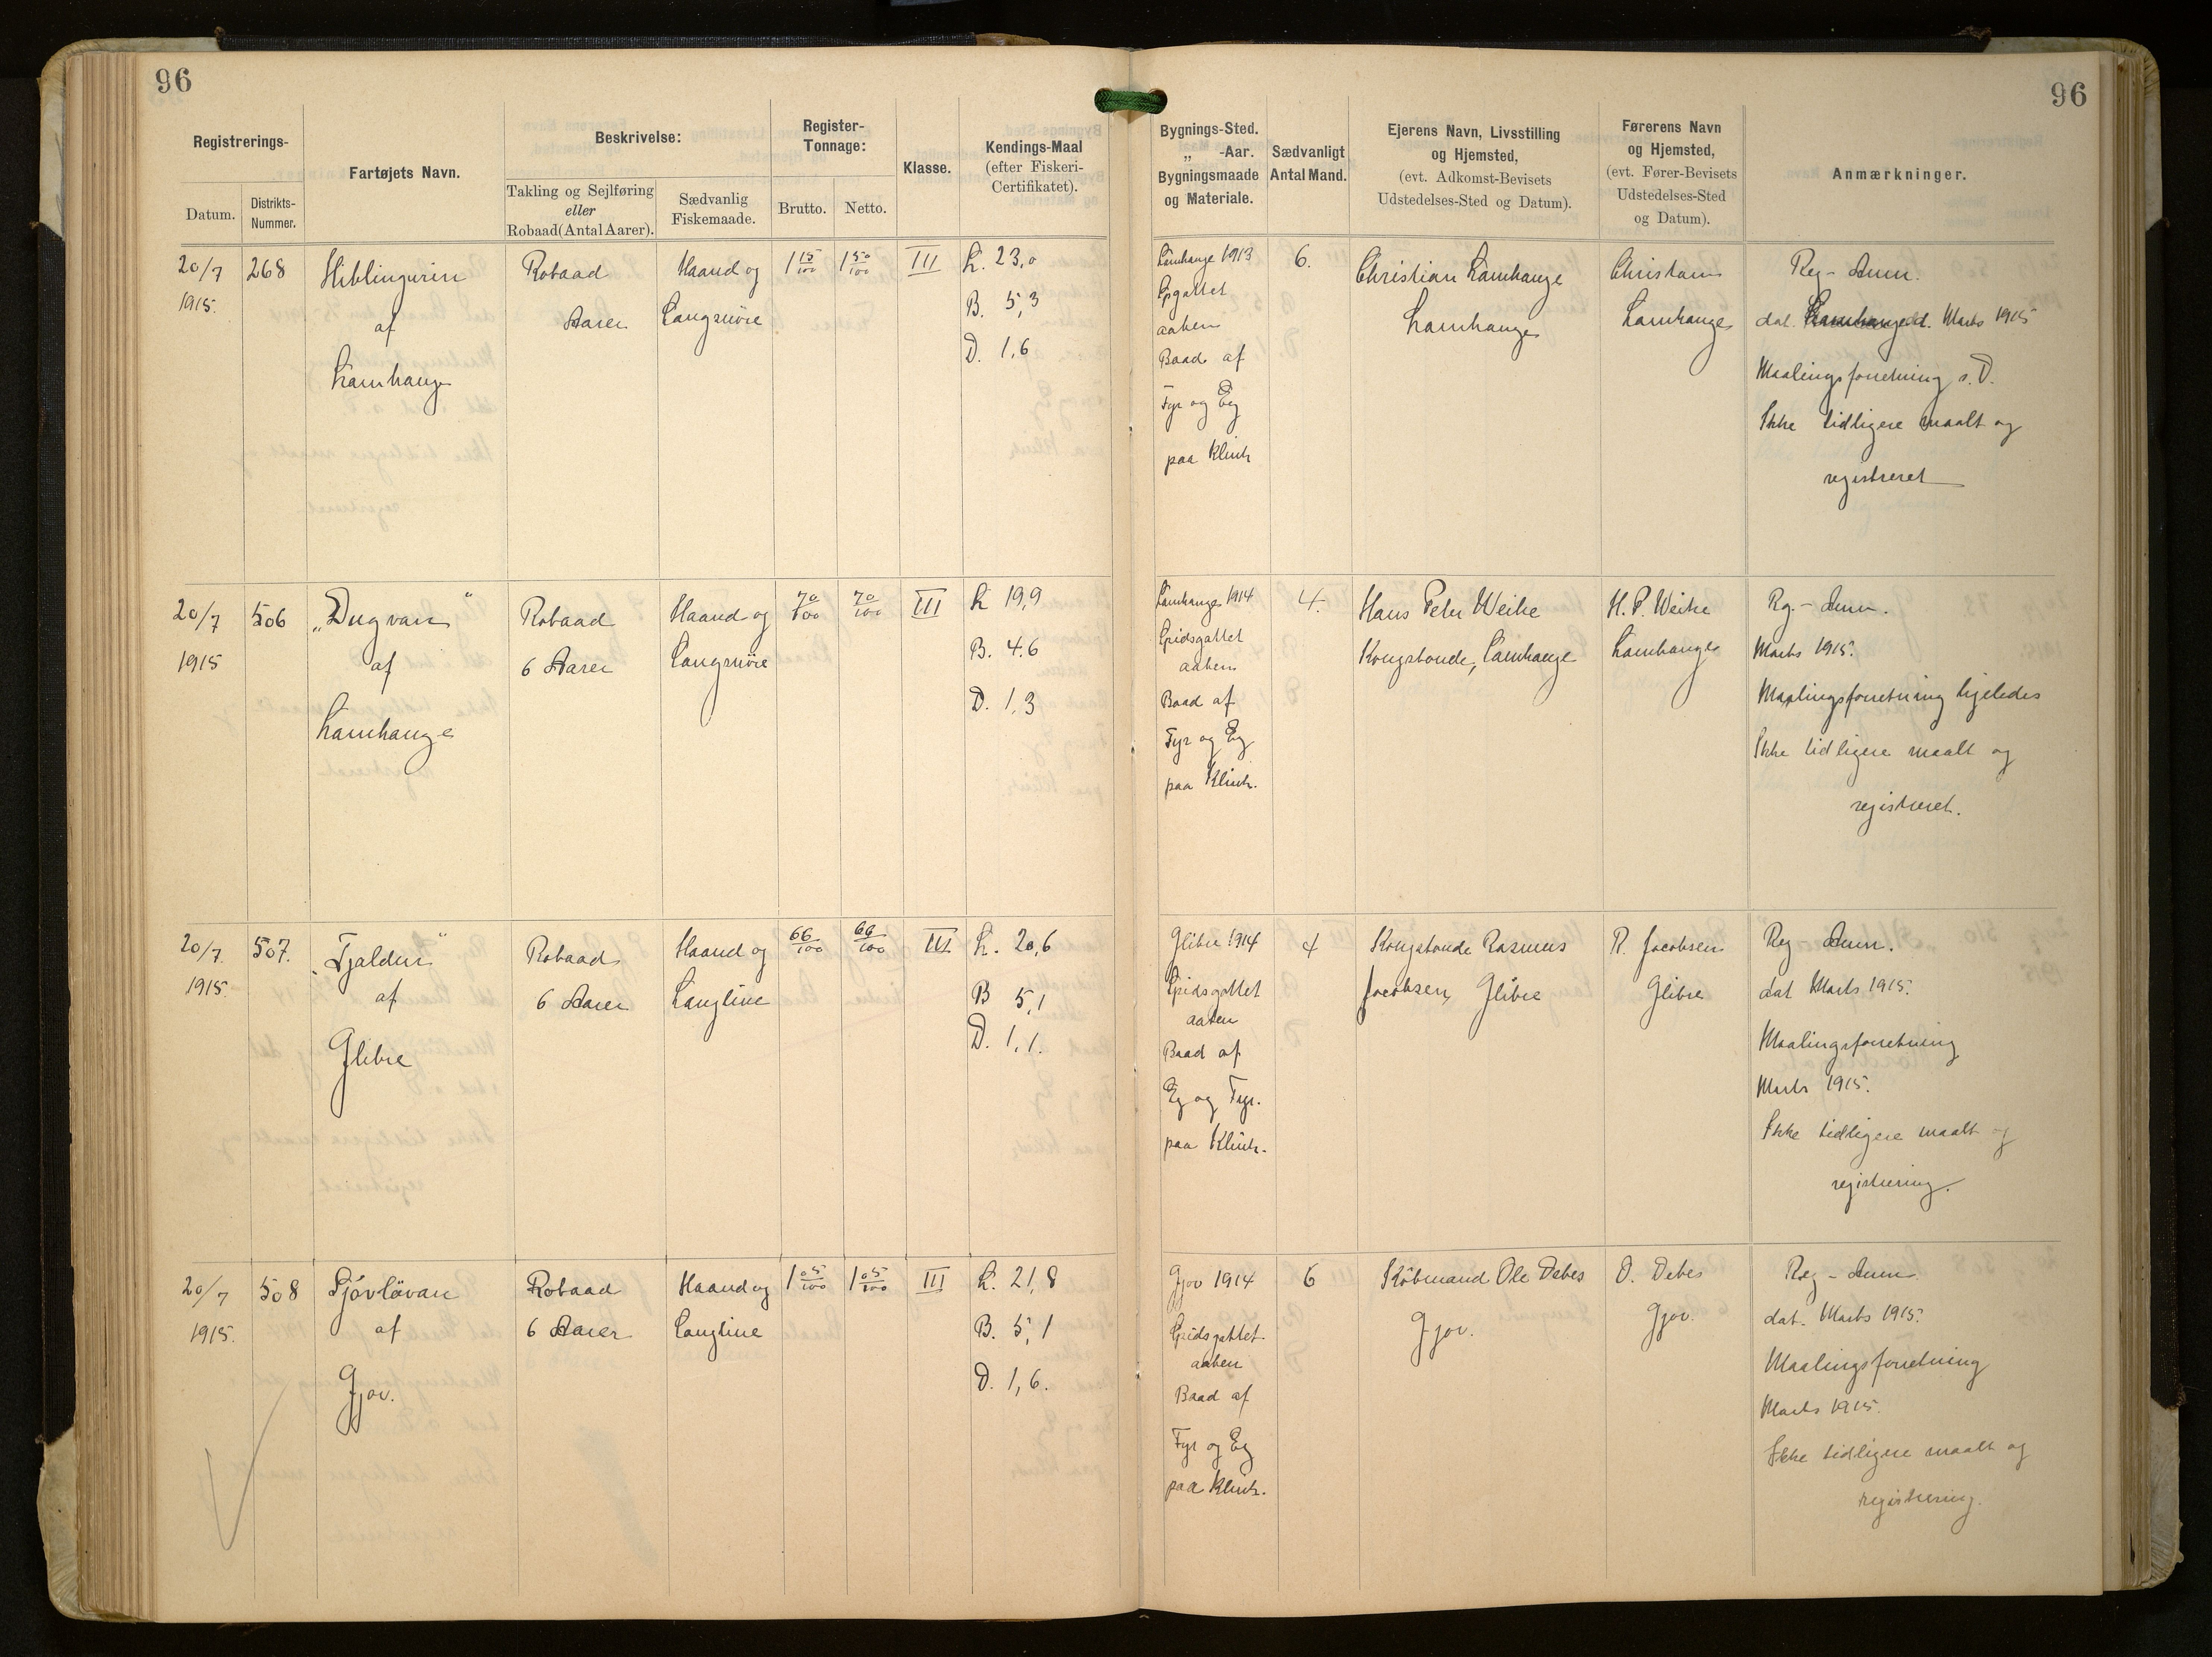 96
96
Registrerings-
Datum.
Distrikts-
Nummer.
Fartøjets Navn.
Beskrivelse:
Takling og Sejlføring
eller
Robaad (Antal Aarer).
Sædvanlig
Fiskemaade.
Register-
Tonnage:
Brutto.
Netto.
Klasse.
Kendings-Maal
(efter Fiskeri-
Certifikatet).
Bygnings-Sted.
„ -Aar.
Bygningsmaade
og Materiale.
Sædvanligt
Antal Mand.
Ejerens Navn, Livsstilling
og Hjemsted,
(evt. Adkomst-Bevisets
Udstedelses-Sted og Datum).
Førerens Navn
og Hjemsted,
(evt. Fører-Bevisets
Udstedelses-Sted
og Datum).
Anmærkninger.
20/7
1915.
268
Hiblingurin
af
Lamhauge
Robaad
Aarer
Haand og
Langsnöre
1 15/100
1 50/100
III
L. 23,0
B. 5,3
D. 1,6
Lamhauge 1913
Spgattet
aaben
Baad af
Fyr og Eg
paa Klink
6.
Christian Lamhauge
Lamhauge
Christian
Lamhauge
Reg-Anm.
dat. d. Marts 1915
Maalingsforretning s. D.
Ikke tidligere maalt og
registreret
20/7
1915
506
„Dugvan"
af
Lamhauge
Robaad
6 Aarer
Haand og
Langsnöre
70/100
70/100
III
L 19,9
B. 4.6
D. 1,3
Lamhauge 1914
Spidsgattet
aaben
Baad af
Fyr og Eg
paa Klink.
4.
Hans Peter Weihe
Kongsbonde, Lamhauge
H. P. Weihe
Lamhauge
Rg.-Anm.
Marts 1915.
Maalingsforretning ligeledes
Ikke tidligere maalt og
registreret.
20/7
1915.
507.
„Tjaldur"
af
Glibre
Robaad
6 Aarer
Haand og
Langline
66/100
66/100
III
L. 20,6
B 5,1
D. 1,1.
Glibre 1914
Spidsgattet
aaben
Baad af
Eg og Fyr.
paa Klink.
4
Kongsbonde Rasmus
Jacobsen, Glibre
R. Jacobsen
Glibre
Reg-Anm.
dat Marts 1915.
Maalingsforretning
Marts 1915.
Ikke tidligere maalt og
registrering.
20/7
1915.
508
Sjóvlövan
af
Gjov.
Robaad
6 Aarer
Haand og
Langline
1 05/100
1 05/100
III
L. 21,8
B. 5,1
D. 1,6.
Gjov 1914
Spidsgattet
aaben
Baad af
Fyr og Eg
paa Klink.
6
Köbmand Ole Debes
Gjov.
O. Debes
Gjov.
Reg-Anm
dat. Marts 1915.
Maalingsforretning
Marts 1915.
Ikke tidligere maalt og
registrering.